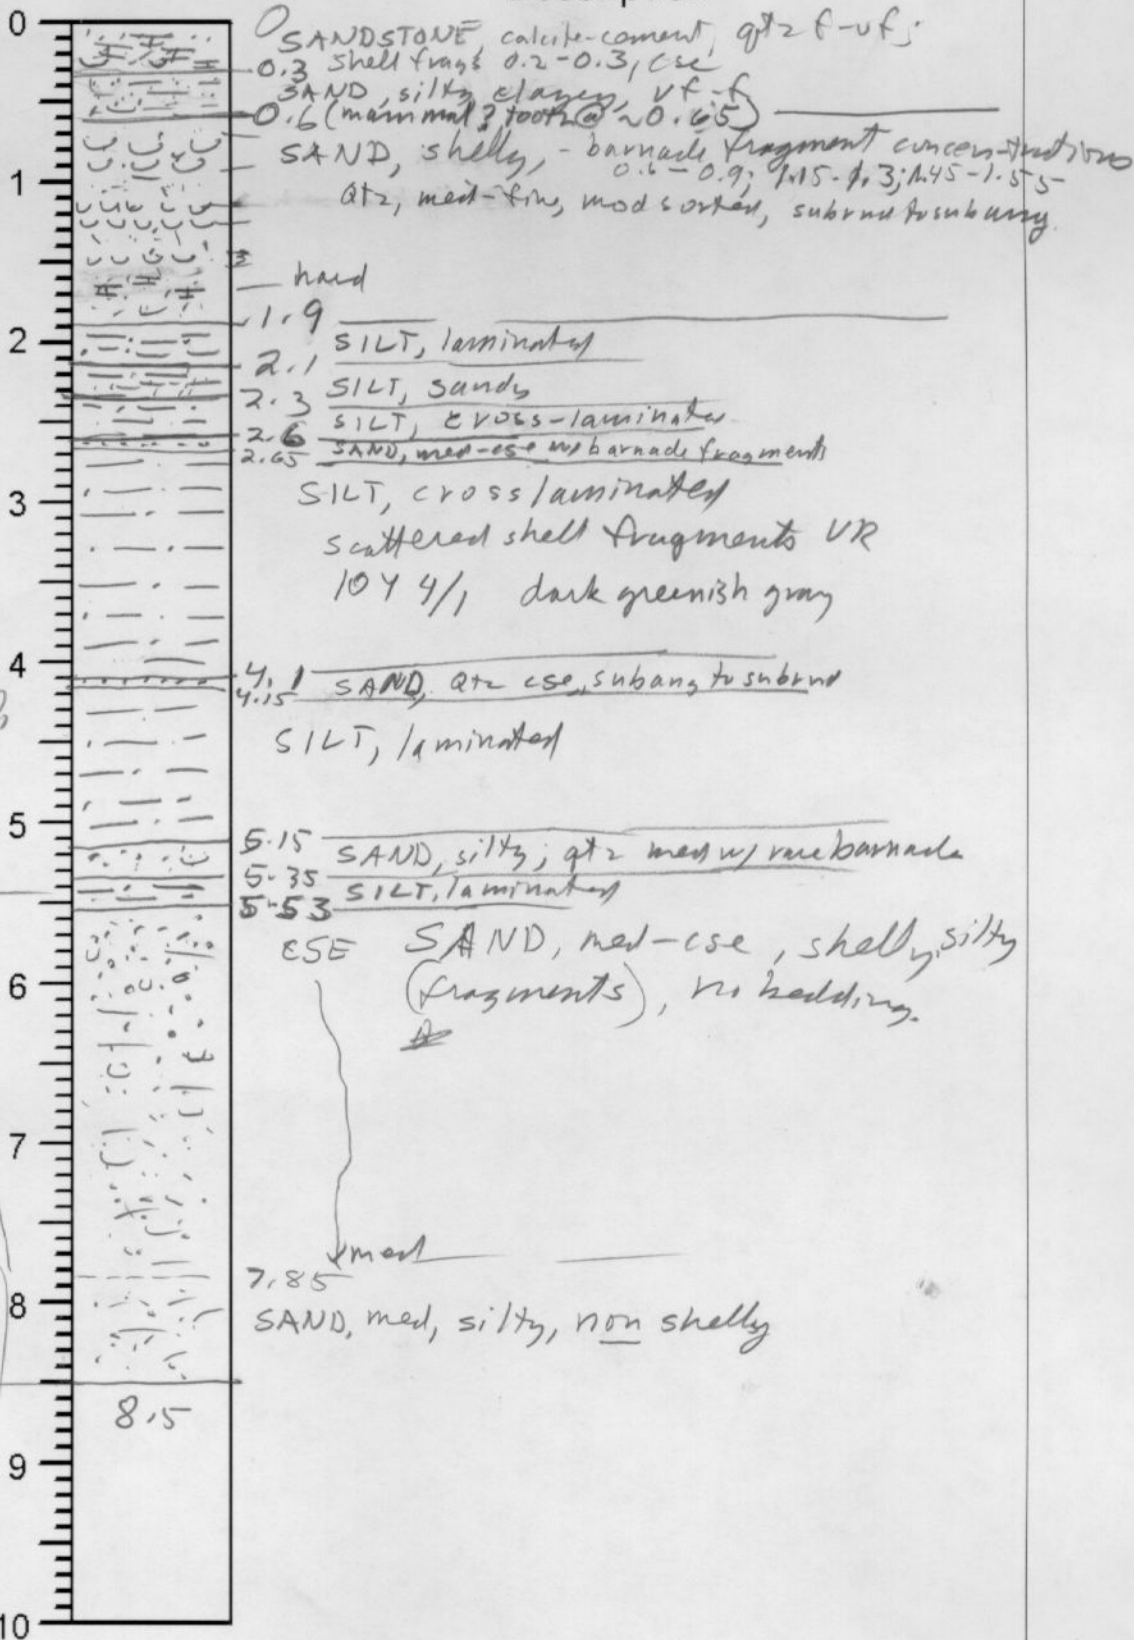 0
0 SANDSTONE, calcite-cement, qtz f-vf;
0.3 shell frags 0.2-0.3, cse
SAND, silty, clayey, vf-f
0.6 (mammal? tooth @ ~0.65)
SAND, shelly, - barnacle fragment concentrations
0.6-0.9; 1.15-1.3; 1.45-1.55
1
Qtz, med-fine, mod sorted, subrnd to subang
hard
1.9
2
SILT, laminated
2.1
SILT, sandy
2.3
SILT, cross-laminated
2.6
2.65 SAND, med-cse w/ barnacle fragments
3
SILT, cross laminated
scattered shell fragments VR
10Y 4/1 dark greenish gray
4
4.1
4.15 SAND, Qtz cse, subang to subrnd
SILT, laminated
5
5.15 SAND, silty; qtz med w/ rare barnacle
5.35 SILT, laminated
5.53
CSE SAND, med-cse, shelly, silty
6
(fragments), no bedding.
7
med
7.85
8
SAND, med, silty, non shelly
8.5
9
10